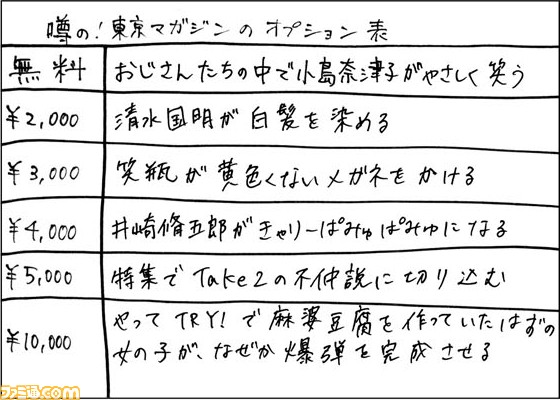 噂の!東京マガジンのオプション表
無料
おじさんたちの中で小島奈津子がやさしく笑う
¥2,000
清水国明が白髪を染める
¥3,000
笑瓶が黄色くないメガネをかける
¥4,000
井崎脩五郎がきゃりーぱみゅぱみゅになる
¥5,000
特集でTake2の不仲説に切り込む
¥10,000
やってTRY!で麻婆豆腐を作っていたはずの
女の子が、なぜか爆弾を完成させる
ファミ通.com